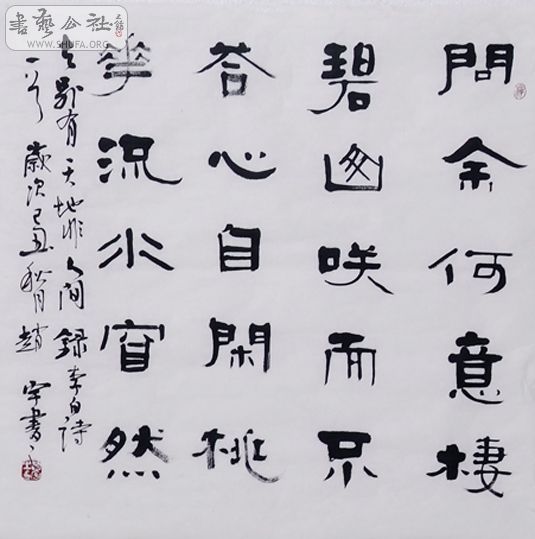 問余何意棲
碧山咲而不
荅心自閑桃
華流水窅然
去別有天地非人間 錄李白詩
一首 歲次己丑秋月 趙宇書
書藝公社
WWW.SHUFA.ORG